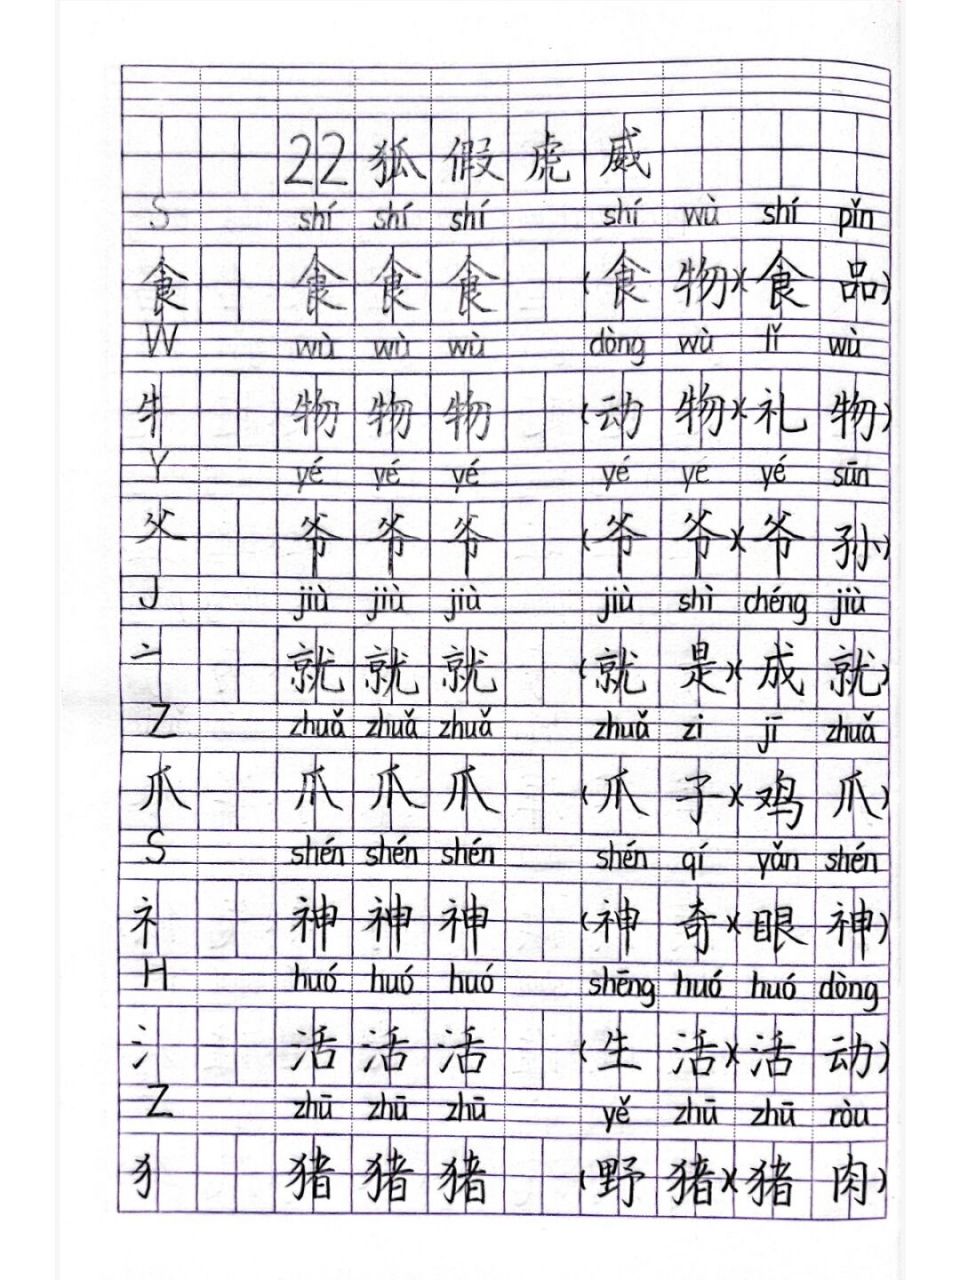 22 狐 假 虎 威
S shí shí shí shí wù shí pǐn
食 食 食 食 (食 物)(食 品)
W wù wù wù dòng wù lǐ wù
牜 物 物 物 (动 物)(礼 物)
Y yé yé yé yé ye yé sūn
父 爷 爷 爷 (爷 爷)(爷 孙)
J jiù jiù jiù jiù shì chéng jiù
亠 就 就 就 (就 是)(成 就)
Z zhuǎ zhuǎ zhuǎ zhuǎ zi jī zhuǎ
爪 爪 爪 爪 (爪 子)(鸡 爪)
S shén shén shén shén qí yǎn shén
礻 神 神 神 (神 奇)(眼 神)
H huó huó huó shēng huó huó dòng
氵 活 活 活 (生 活)(活 动)
Z zhū zhū zhū yě zhū zhū ròu
犭 猪 猪 猪 (野 猪)(猪 肉)